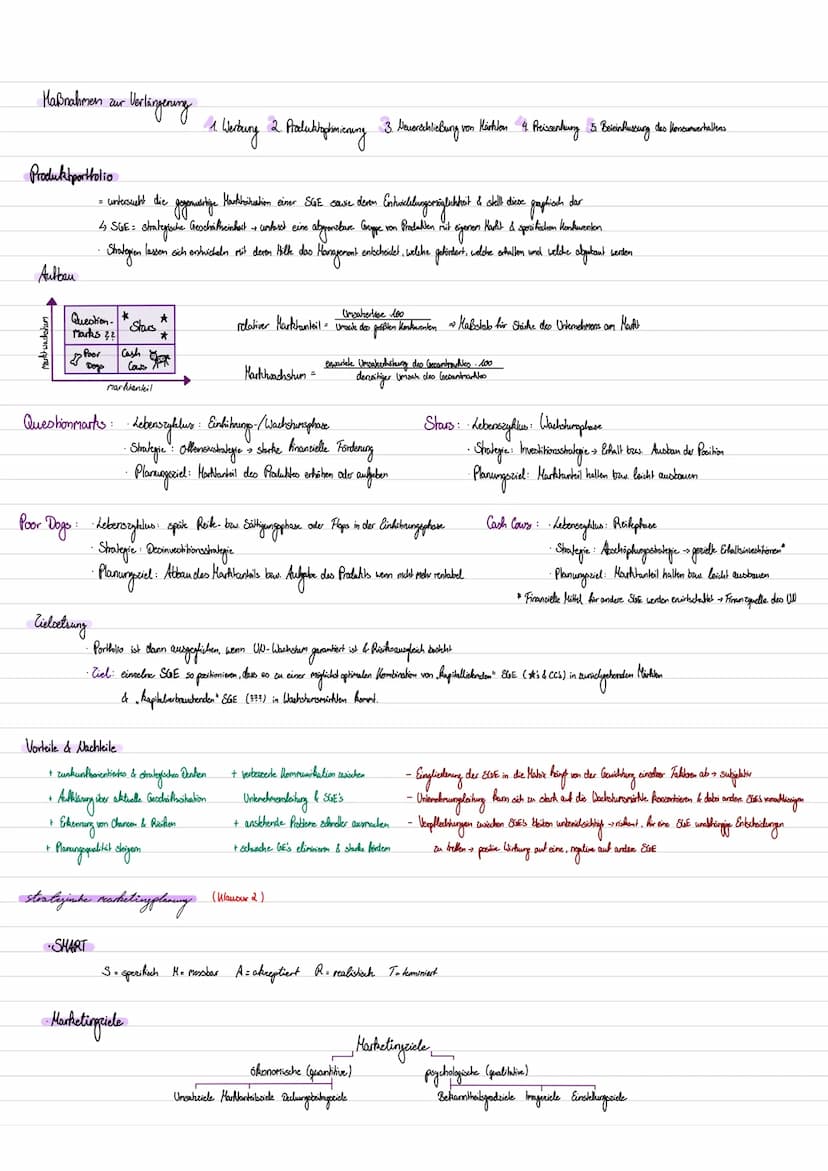 Maßnahmen zur Verlängerung
1. Werbung 2. Produktoptimierung 3. Neuerschließung von Märkten 4. Preissenkung 5. Beeinflussung des Konsumverhaltens
Produktportfolio
= untersucht die gegenwärtige Marktsituation einer SGE sowie deren Entwicklungsmöglichkeit & stellt diese graphisch dar
↳ SGE = strategische Geschäftseinheit → umfasst eine abgrenzbare Gruppe von Produkten mit eigenem Markt & spezifischen Konkurrenten
· Strategien lassen sich entwickeln mit deren Hilfe das Management entscheidet, welche gefördert, welche erhalten und welche abgebaut werden
Aufbau
Marktwachstum
Question-Marks ??
Stars
Poor Dogs
Cash Cows
Marktanteil
relativer Marktanteil = Umsatzerlöse · 100 / Umsatz des größten Konkurrenten ⇒ Maßstab für Stärke des Unternehmens am Markt
Marktwachstum = erwartete Umsatzerhöhung des Gesamtmarktes · 100 / derzeitiger Umsatz des Gesamtmarktes
Questionmarks: · Lebenszyklus: Einführungs-/Wachstumsphase
· Strategie: Offensivstrategie → starke finanzielle Förderung
· Planungsziel: Marktanteil des Produktes erhöhen oder aufgeben
Stars: · Lebenszyklus: Wachstumsphase
· Strategie: Investitionsstrategie → Erhalt bzw. Ausbau der Position
· Planungsziel: Marktanteil halten bzw. leicht ausbauen
Poor Dogs: · Lebenszyklus: späte Reife- bzw. Sättigungsphase oder Flops in der Einführungsphase
· Strategie: Desinvestitionsstrategie
· Planungsziel: Abbau des Marktanteils bzw. Aufgabe des Produkts wenn nicht mehr rentabel
Cash Cows: · Lebenszyklus: Reifephase
· Strategie: Abschöpfungsstrategie → gezielte Erhaltsinvestitionen*
· Planungsziel: Marktanteil halten bzw. leicht ausbauen
* Finanzielle Mittel für andere SGE werden erwirtschaftet → Finanzquelle des UN
Zielsetzung
· Portfolio ist dann ausgeglichen, wenn UN-Wachstum garantiert ist & Risikoausgleich besteht
· Ziel: einzelne SGE so positionieren, dass es zu einer möglichst optimalen Kombination von "kapitalliefernden" SGE (☆'s & CC's) in zurückgehenden Märkten
& "kapitalverbrauchenden" SGE (???) in Wachstumsmärkten kommt.
Vorteile & Nachteile
+ zukunftsorientiertes & strategisches Denken
+ Aufklärung über aktuelle Geschäftssituation
+ Erkennung von Chancen & Risiken
+ Planungsqualität steigern
+ verbesserte Kommunikation zwischen
Unternehmensleitung & SGE's
+ anstehende Probleme schneller ausmachen
+ schwache GE's eliminieren & starke fördern
- Eingliederung der SGE in die Matrix hängt von der Gewichtung einzelner Faktoren ab → subjektiv
- Unternehmungsleitung kann sich zu stark auf die Wachstumsmärkte konzentrieren & dabei andere SGE's vernachlässigen
- Verpflechtungen zwischen SGE's bleiben unberücksichtigt → riskant, für eine SGE unabhängige Entscheidungen
zu treffen → positive Wirkung auf eine, negative auf andere SGE
strategische Marketingplanung (Klausur 2)
· SMART
S = spezifisch M = messbar A = akzeptiert R = realistisch T = terminiert
· Marketingziele
Marketingziele
ökonomische (quantitive) psychologische (qualitative)
Umsatzziele Marktanteilsziele Deckungsbeitragsziele Bekanntheitsgradziele Imageziele Einstellungsziele